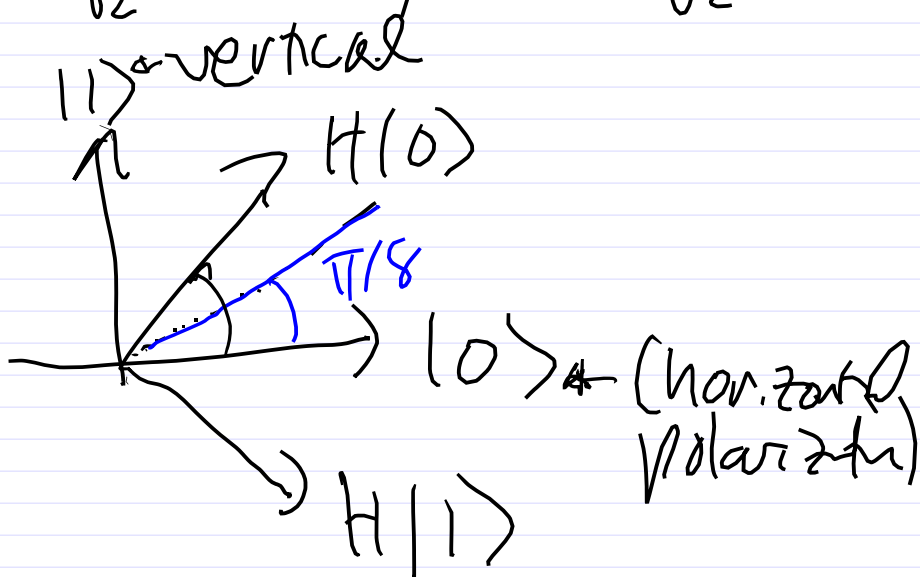 √2 √2
|1⟩ ← vertical
H|0⟩
π/8
|0⟩ ← (horizontal
polarization)
H|1⟩